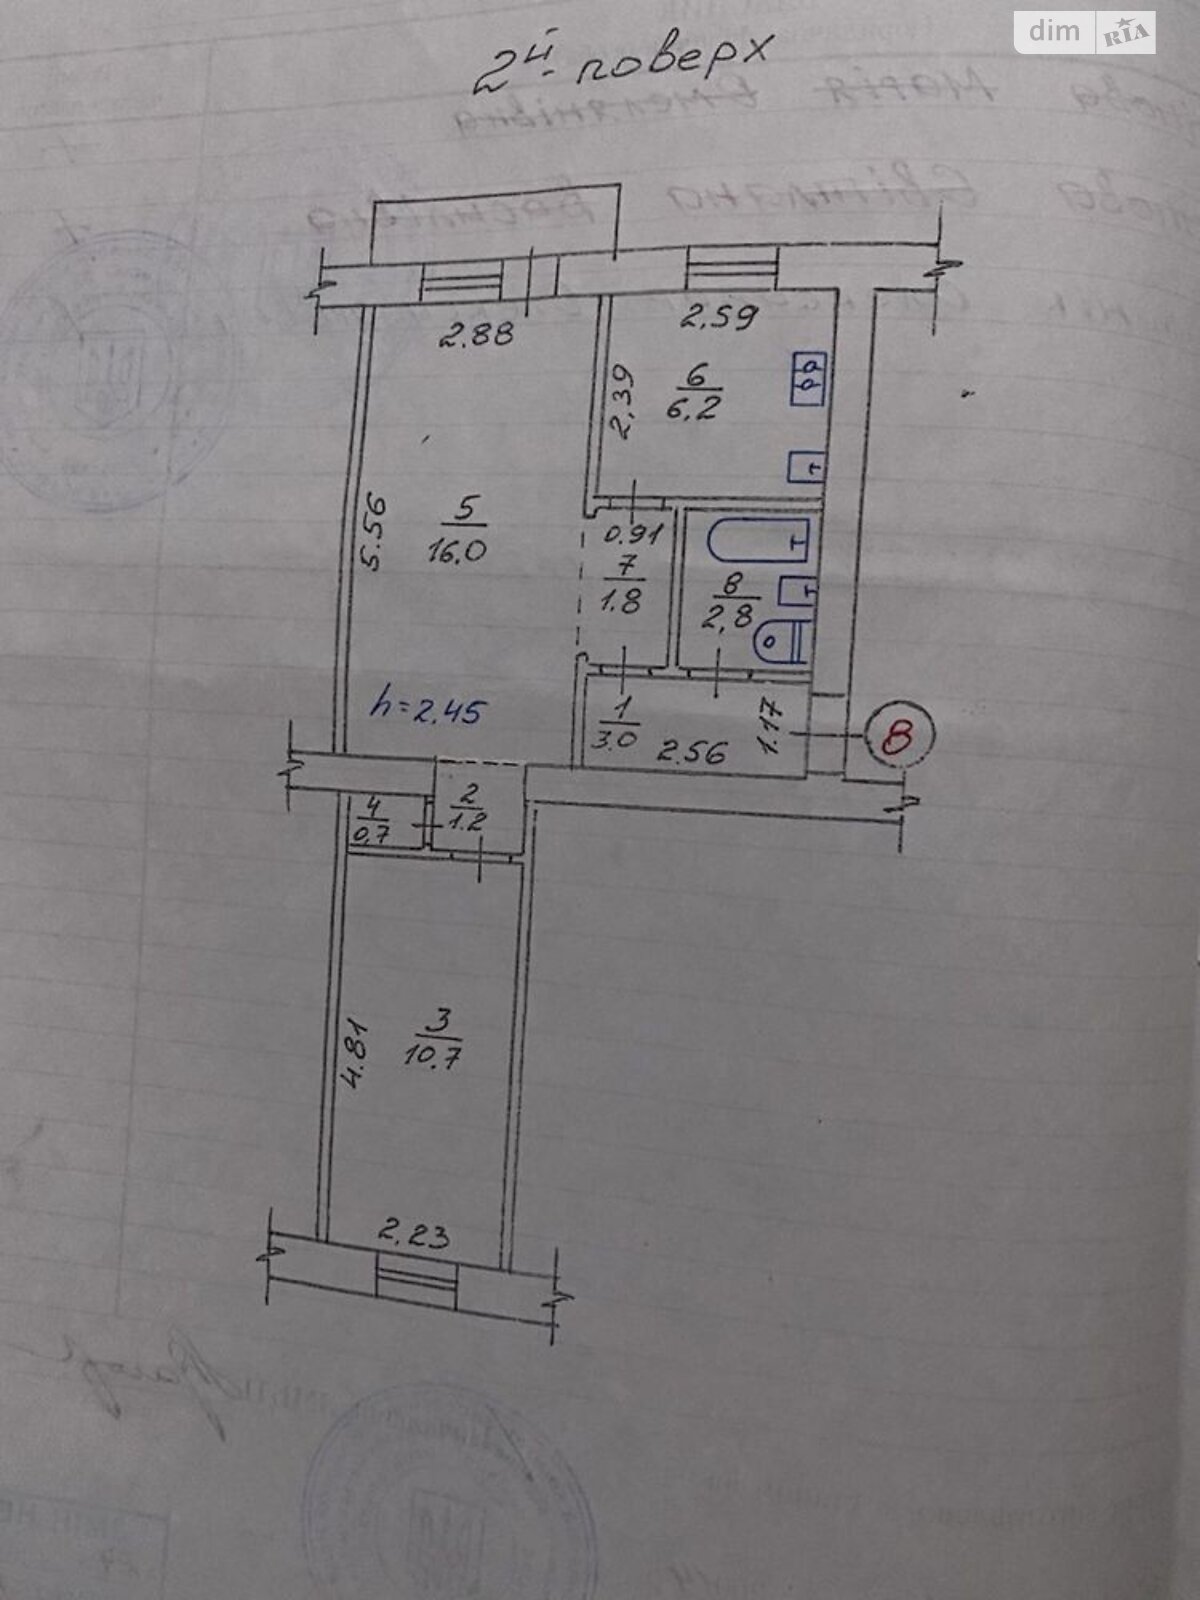 dim RIA
2й поверх
2.88
2,59
2,39
6
6,2
5.56
5
16.0
0.91
7
1.8
8
2,8
h=2.45
1
3.0
2.56
1.17
8
4
0,7
2
1.2
4.81
3
10.7
2,23